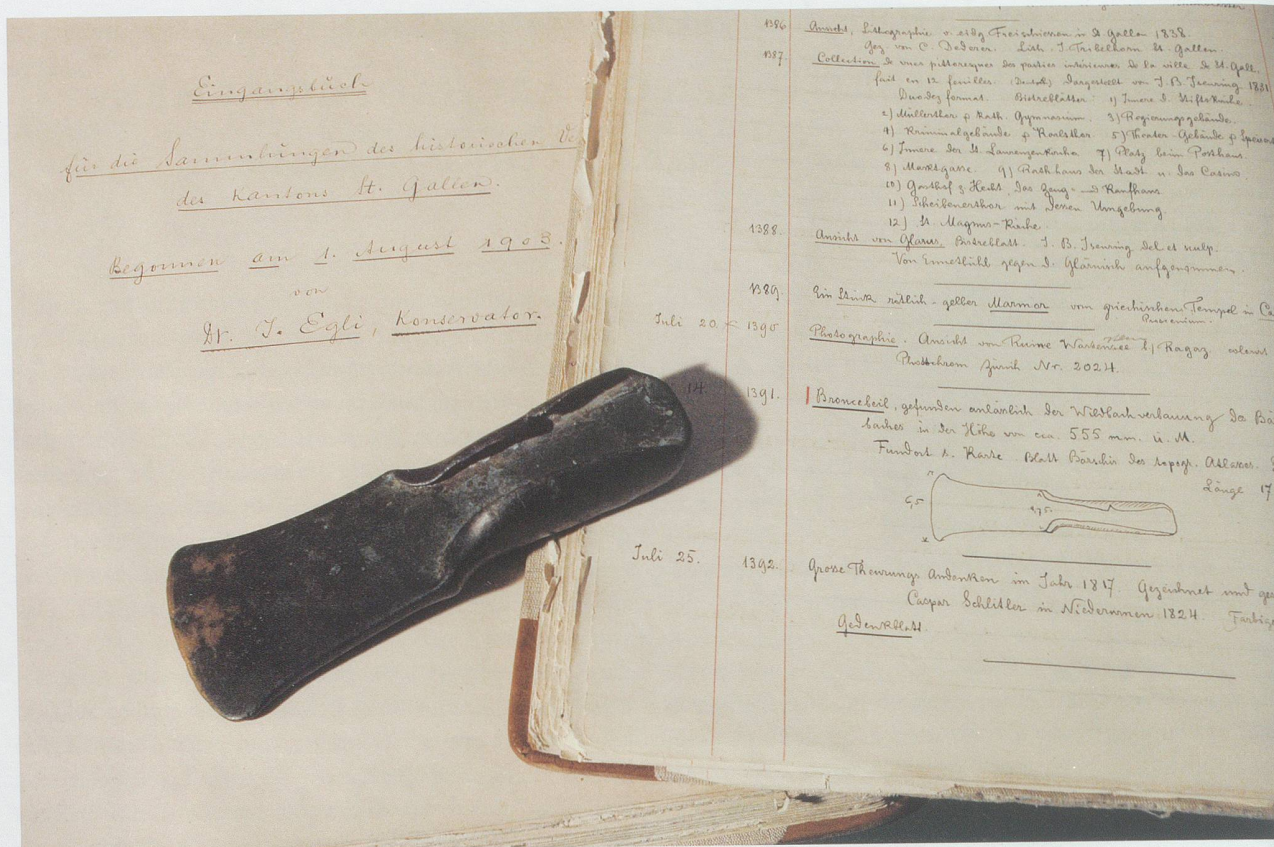 Eingangsbuch
für die Sammlungen des historischen
des Kantons St. Gallen.
Begonnen am 1. August 1903.
von
Dr. J. Egli, Konservator.
1386 Ansicht, Lithographie v. eidg Freischiessen in St Gallen 1838.
Gez. von C. Dederer. Lith. J. Tribelhorn St. Gallen.
1387. Collection de vues pittoresques des parties intérieures de la ville de St. Gall.
fait en 12 feuilles. (Deutsch) Dargestellt von J. B. Isenring 1831
Duodez format. Bistreblätter 1) Innere d. Stiftskirche.
2) Müllerthor & Kath. Gymnasium. 3) Regierungsgebäude.
4) Kriminalgebäude & Karlsthor. 5) Theater-Gebäude &
6) Innere der St. Laurenzenkirche 7) Platz beim Posthaus.
8) Marktgasse. 9) Rathhaus der Stadt u. das Casino.
10) Gasthof z. Hecht. Das Zeug- und Kaufhaus
11) Scheibenerthor mit dessen Umgebung
12) St. Magnus-Kirche.
1388. Ansicht von Glarus. Bistreblatt. J. B. Isenring del et sculp.
Von Ennetbühl gegen d. Glärnisch aufgenommen.
1389 Ein Stück rötlich-gelber Marmor vom griechischen Tempel in
Juli 20. 1390 Photographie. Ansicht von Ruine b/ Ragaz.
Photochrom Zürich Nr. 2024.
14. 1391. Broncebeil, gefunden anlässlich der Wildbachverbauung des
baches in der Höhe von cca. 555 mm. ü. M.
Fundort s. Karte Blatt Bärschis des topogr. Atlasses.
Länge 17
6,5
Juli 25. 1392. Grosse Theurungs Andenken im Jahr 1817. Gezeichnet und
Caspar Schlitler in Niederurnen 1824.
Gedenkblatt.